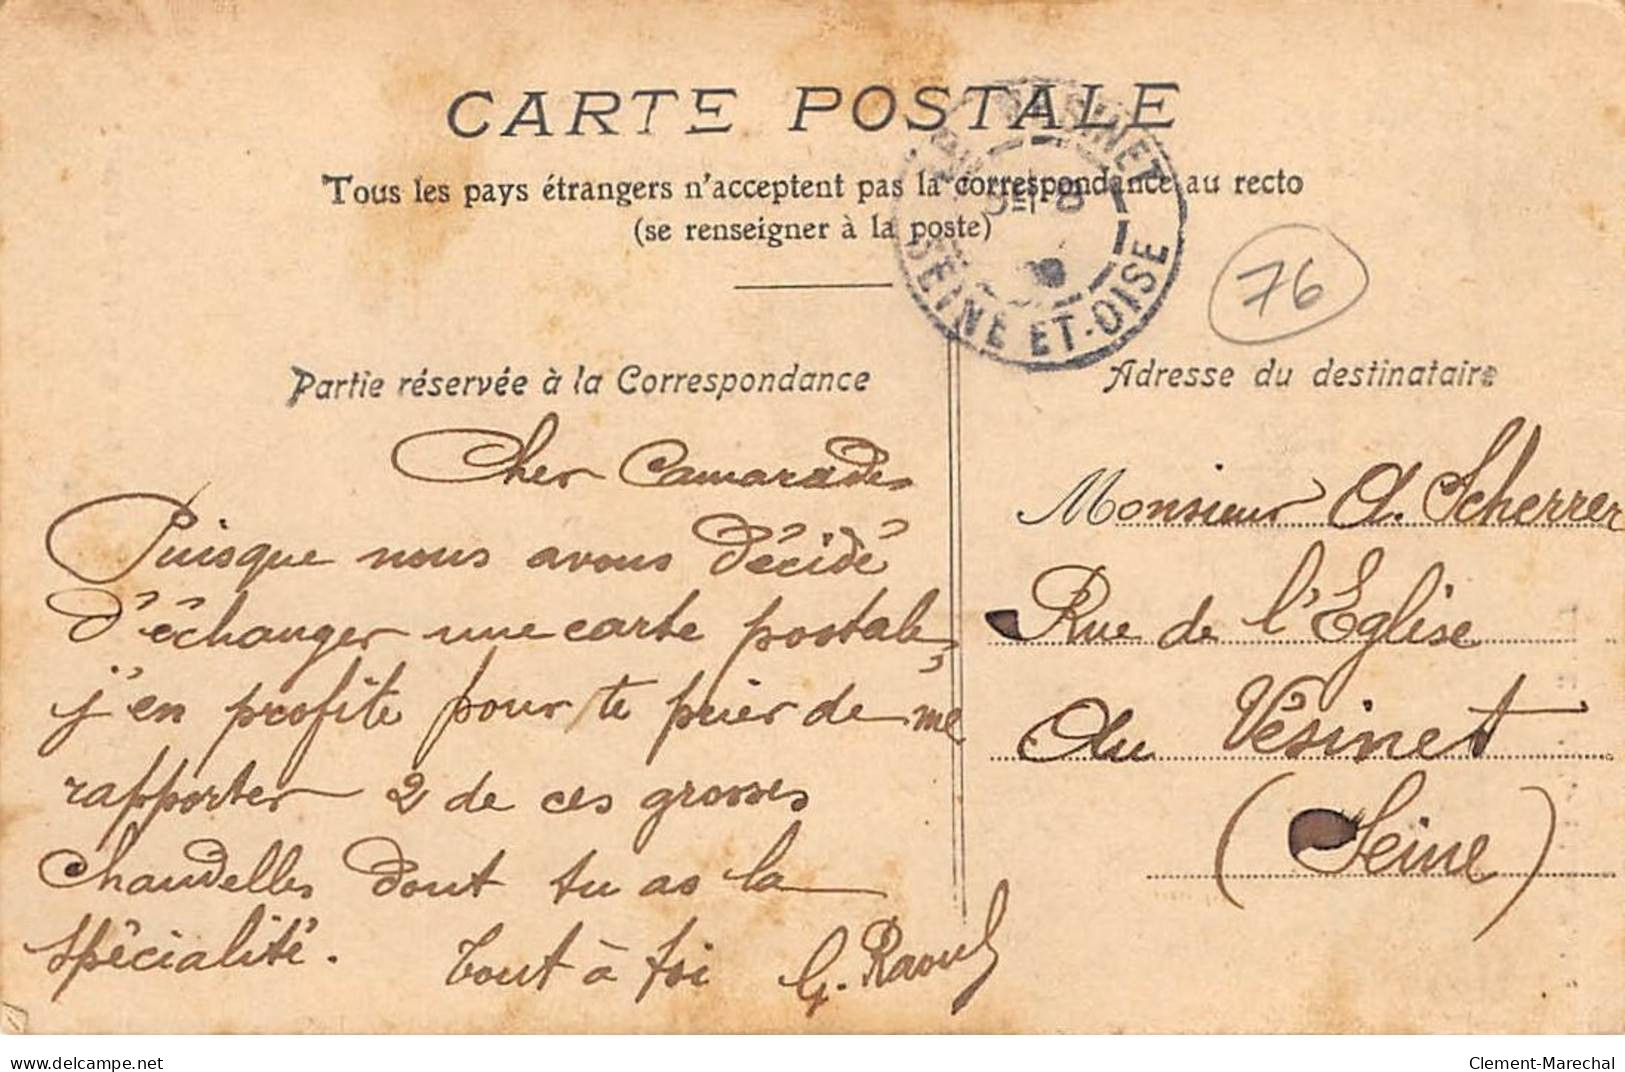 CARTE POSTALE
Tous les pays étrangers n'acceptent pas la correspondance au recto
(se renseigner à la poste)
SEINE-ET-OISE
76
Partie réservée à la Correspondance
Cher Camarade
Puisque nous avons décidé
d'échanger une carte postale,
j'en profite pour te prier de me
rapporter 2 de ces grosses
Chandelles dont tu as la
spécialité.
Tout à toi G. Raoul
Adresse du destinataire
Monsieur A. Scherrer
Rue de l'Eglise
Au Vésinet
(Seine)
www.delcampe.net
Clement-Marechal